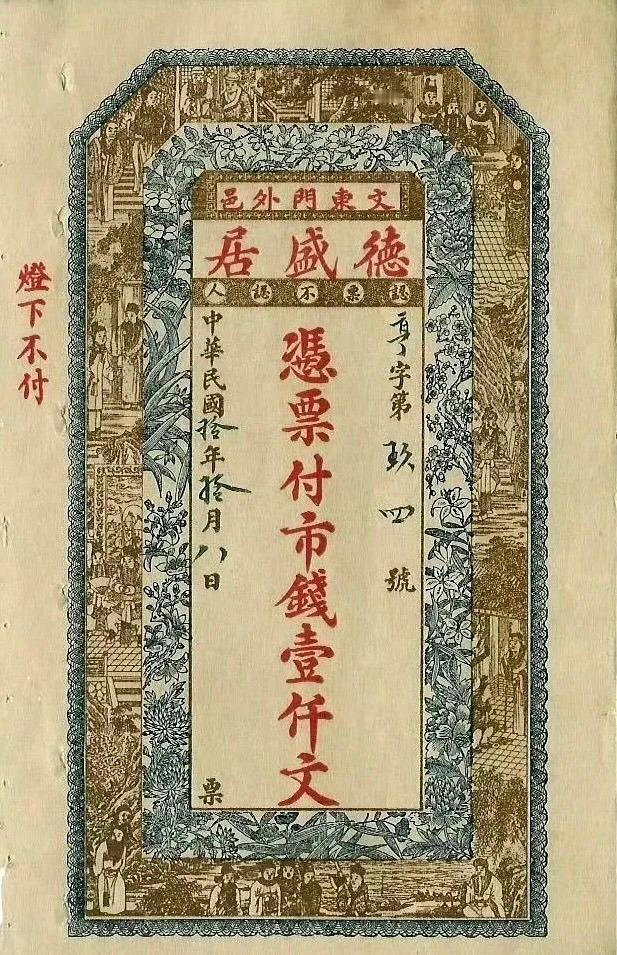 文東門外邑
德盛居
認票不認人
亨字第玖四號
憑票付市錢壹仟文
中華民國拾年拾月八日票
燈下不付